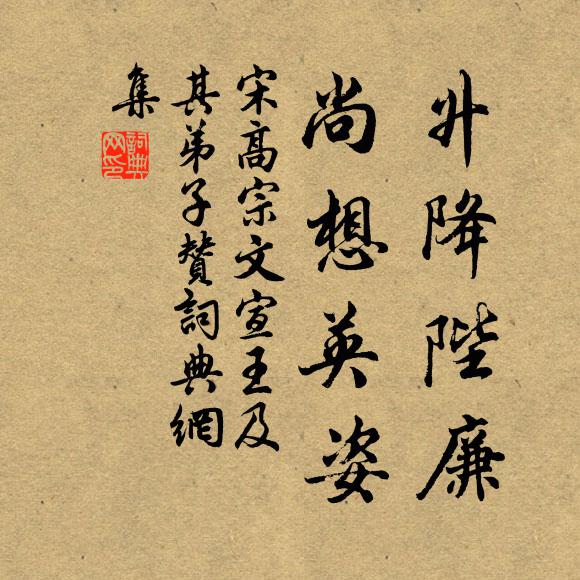 升降陛廉
尚想英姿
宋高宗文宣王及
其弟子贊詞典網
集
詞典網印